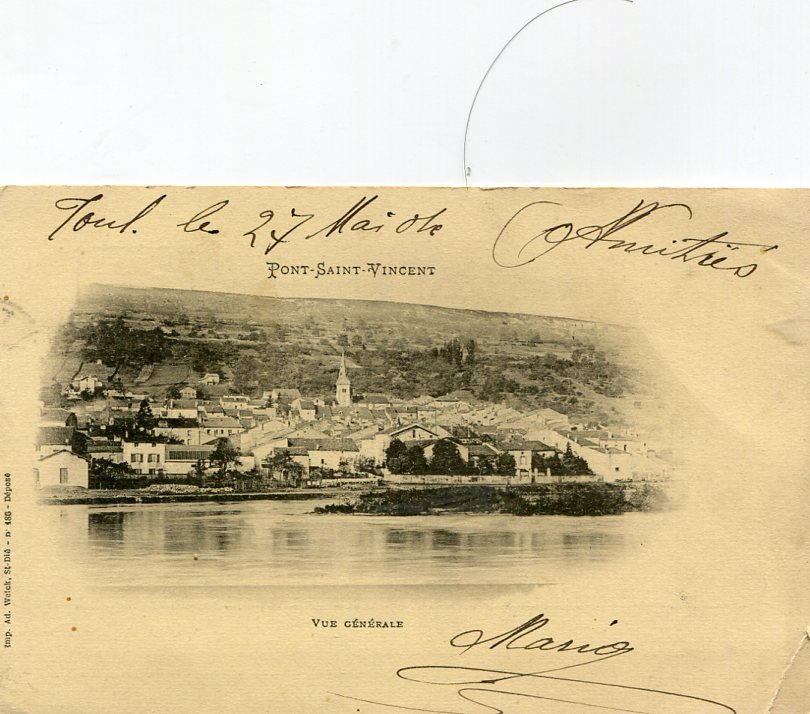 Toul. le 27 Mai 01
Amitiés
PONT-SAINT-VINCENT
Imp. Ad. Weick, St-Dié - n° 486 - Déposé
VUE GÉNÉRALE